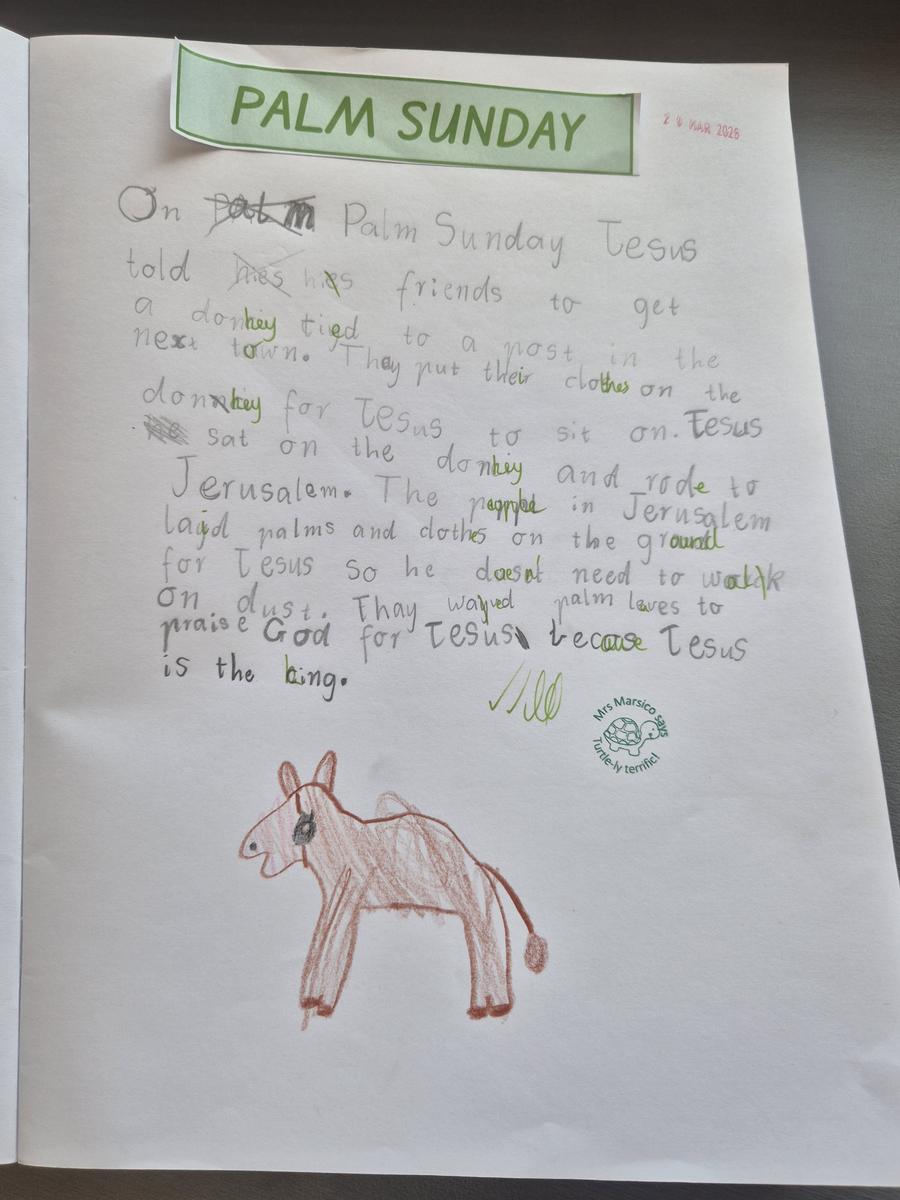 PALM SUNDAY
2 MAR 2026
On palm Palm Sunday Jesus
told hies his friends to get
a donkey tied to a post in the
next town. They put their clothes on the
donkey for Jesus to sit on. Jesus
he sat on the donkey and rode to
Jerusalem. The people in Jerusalem
laid palms and clothes on the ground
for Jesus so he doesn't need to walk
on dust. Thay waved palm leves to
praise God for Jesus because Jesus
is the king.
Mrs Marsico says
Turtle-ly terrific!